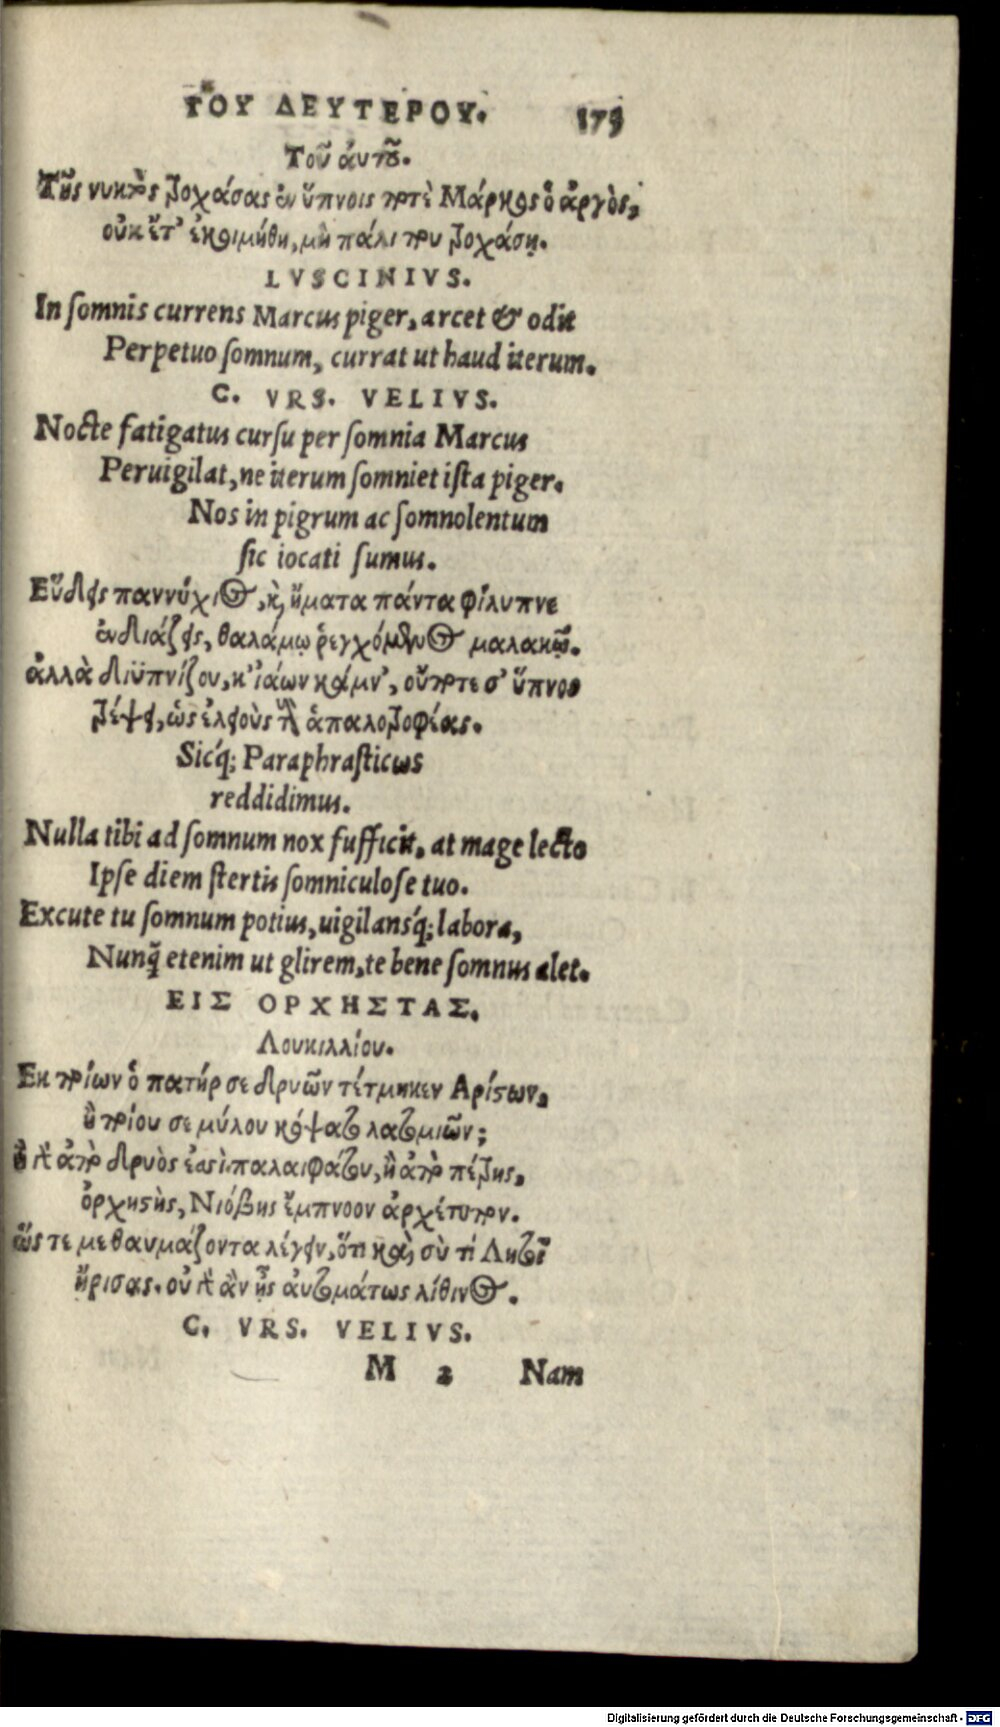 ΤΟΥ ΔΕΥΤΕΡΟΥ. 179
Τοῦ ἀυτοῦ.
Τῆς νυκτὸς τροχάσας ἐν ὕπνοις ποτὲ Μάρκος ὁ ἀργὸς,
οὐκ ἔτ' ἐκοιμήθη, μὴ πάλι που τροχάσῃ.
LVSCINIVS.
In ſomnis currens Marcus piger, arcet & odit
Perpetuo ſomnum, currat ut haud iterum.
C. VRS. VELIVS.
Nocte fatigatus curſu per ſomnia Marcus
Peruigilat, ne iterum ſomniet iſta piger.
Nos in pigrum ac ſomnolentum
ſic iocati ſumus.
Εὕδεις παννύχιος, καὶ ἤματα πάντα φίλυπνε
ἐνδιάζεις, θαλάμῳ ῥεγχόμενος μαλακῷ.
ἀλλὰ διϋπνίζου, κ' ἰάων κάμν', οὔποτε σ' ὕπνος
τρέψει, ὡς ἐλειοὺς
Sicq́; Paraphraſticως
reddidimus.
Nulla tibi ad ſomnum nox ſufficit, at mage lecto
Ipſe diem ſtertis ſomniculoſe tuo.
Excute tu ſomnum potius, uigilansq́; labora,
Nunq̃ etenim ut glirem, te bene ſomnus alet.
ΕΙΣ ΟΡΧΗΣΤΑΣ.
Λουκιλλίου.
Εκ ποίων ὁ πατήρ σε δρυῶν τέτμηκεν Αρίστων,
ἢ ποίου σε μύλου κόψατο λατομιῶν;
ἢ γὰρ ἀπὸ δρυὸς ἐσσὶ παλαιφάτου, ἢ ἀπὸ πέτρης,
ὀρχηστὴς, Νιόβης ἔμπνοον ἀρχέτυπον.
ὥς τε με θαυμάζοντα λέγειν, ὅτι καὶ σὺ τί Λητοῖ
ἤρισας. οὐ γὰρ ἂν ἦς ἀυτομάτως λίθινος.
C. VRS. VELIVS.
M 2 Nam
Digitalisierung gefördert durch die Deutsche Forschungsgemeinschaft - DFG